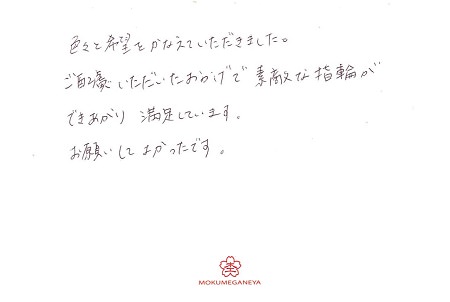 色々と希望をかなえていただきました。
ご配慮いただいたおかげで素敵な指輪が
できあがり満足しています。
お願いしてよかったです。
MOKUMEGANEYA